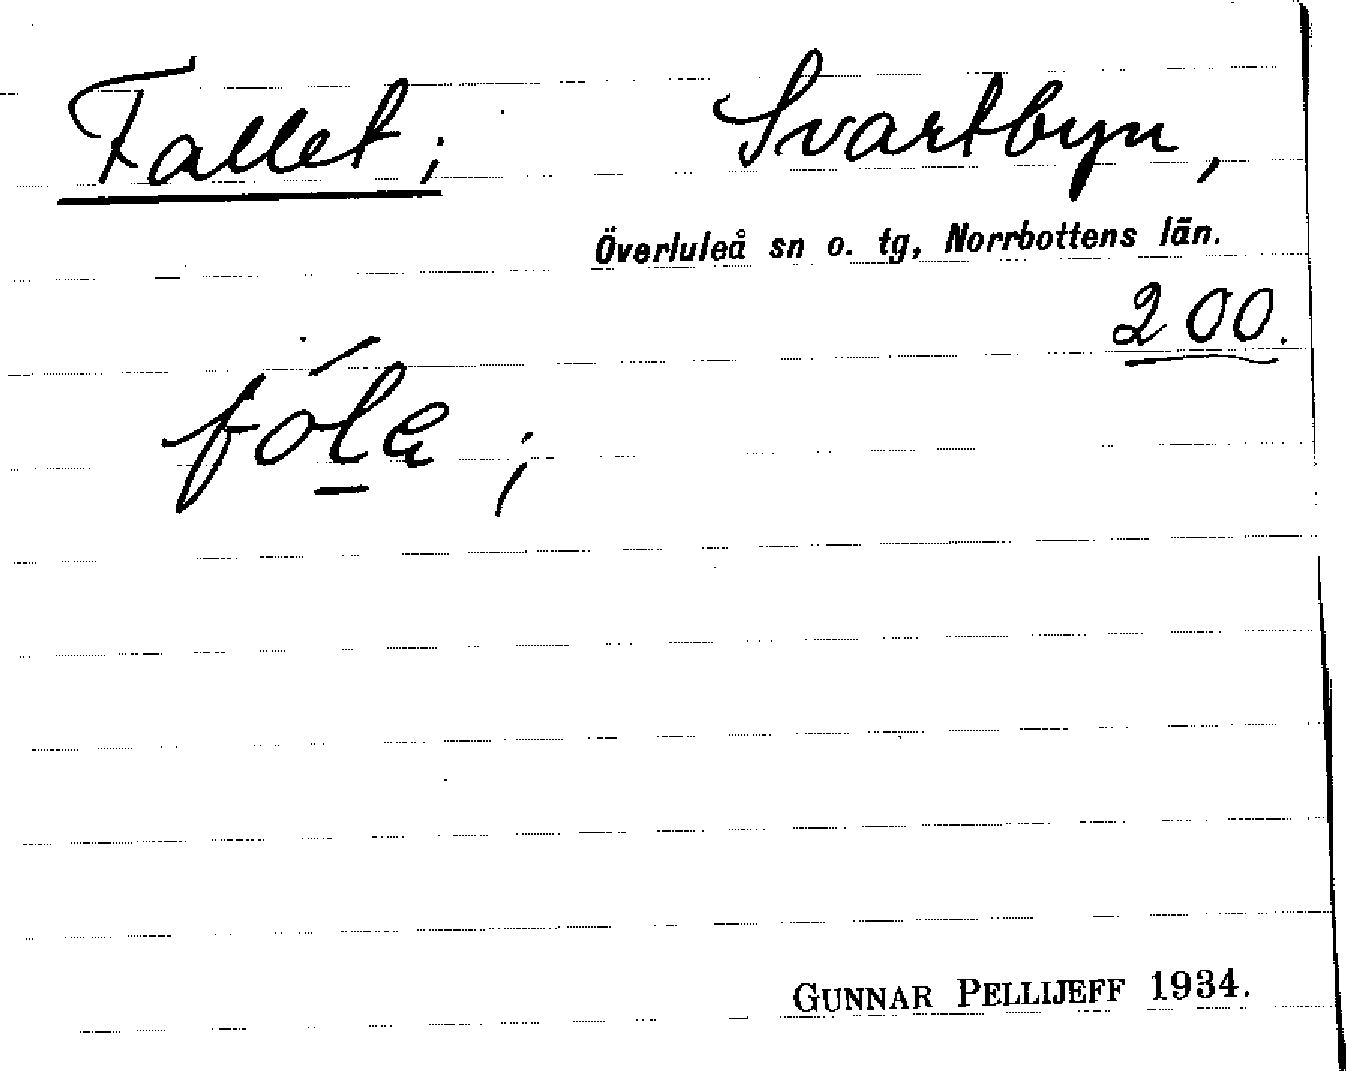 Fallet; Svartbyn,
Överluleå sn o. tg, Norrbottens län.
200.
fó̱lɐ;
GUNNAR PELLIJEFF 1934.